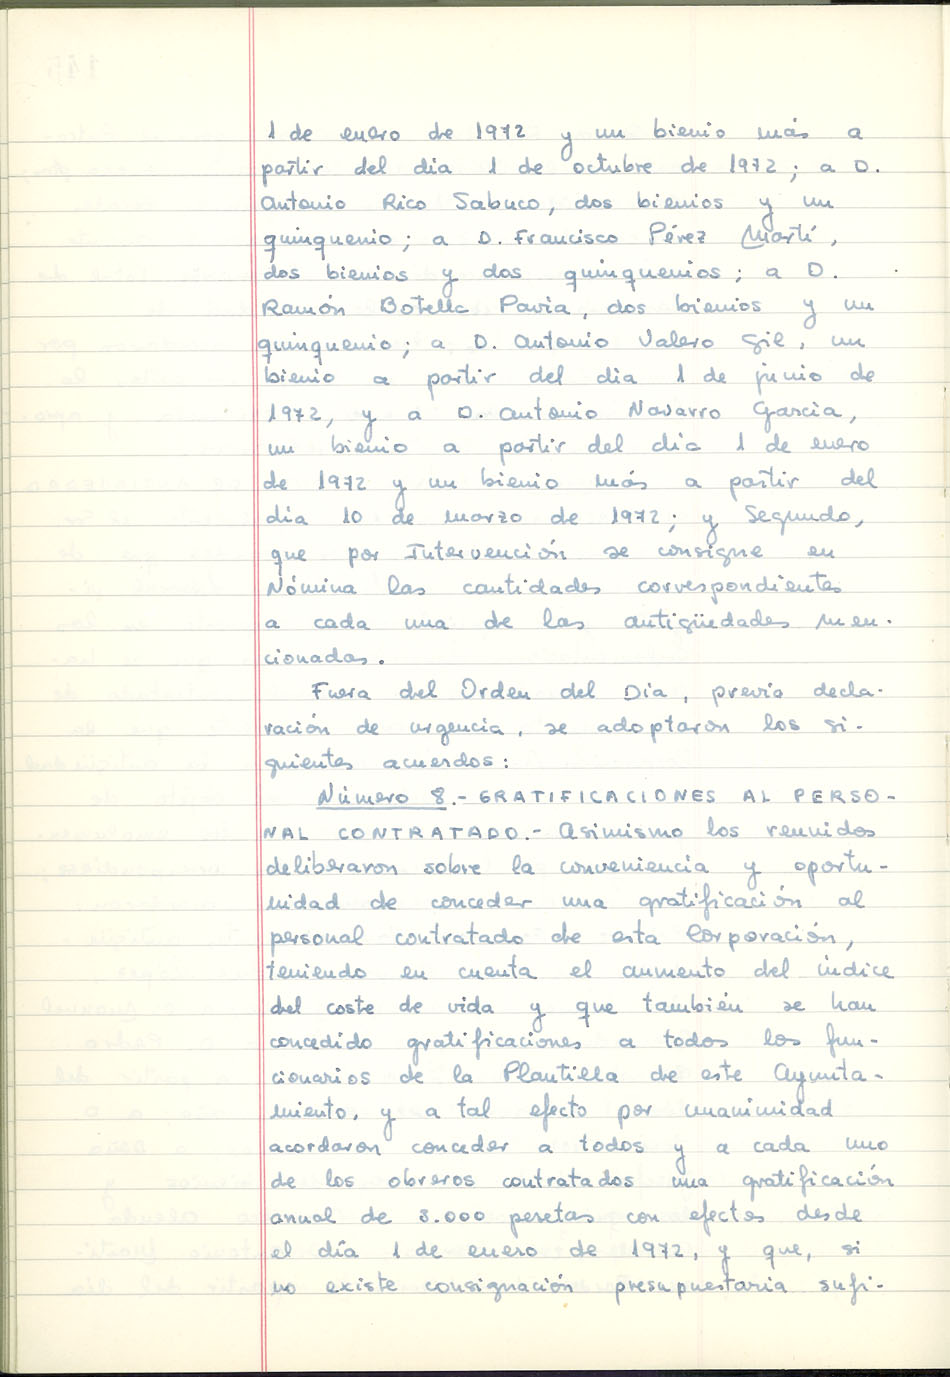 1 de enero de 1972 y un bienio más a
partir del día 1 de octubre de 1972; a D.
Antonio Rico Sabuco, dos bienios y un
quinquenio; a D. Francisco Pérez Martí,
dos bienios y dos quinquenios; a D.
Ramón Botella Pavia, dos bienios y un
quinquenio; a D. Antonio Valero Gil, un
bienio a partir del día 1 de junio de
1972, y a D. Antonio Navarro García,
un bienio a partir del día 1 de enero
de 1972 y un bienio más a partir del
día 10 de marzo de 1972; y Segundo,
que por Intervención se consigne en
Nómina las cantidades correspondientes
a cada una de las antigüedades men-
cionadas.
Fuera del Orden del Día, previa decla-
ración de urgencia, se adoptaron los si-
guientes acuerdos:
Número 8.- GRATIFICACIONES AL PERSO-
NAL CONTRATADO.- Asimismo los reunidos
deliberaron sobre la conveniencia y oportu-
nidad de conceder una gratificación al
personal contratado de esta Corporación,
teniendo en cuenta el aumento del índice
del coste de vida y que también se han
concedido gratificaciones a todos los fun-
cionarios de la Plantilla de este Ayunta-
miento, y a tal efecto por unanimidad
acordaron conceder a todos y a cada uno
de los obreros contratados una gratificación
anual de 3.000 pesetas con efectos desde
el día 1 de enero de 1972, y que, si
no existe consignación presupuestaria sufi-